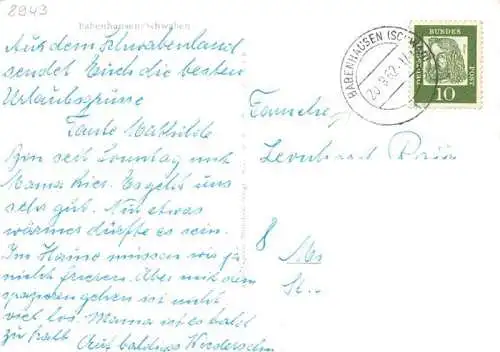 2943
Babenhausen/Schwaben
Aus dem Schwabenland
sendet Euch die besten
Urlaubsgrüsse
Tante Mathilde
Bin seit Sonntag mit
Mama hier. Es geht uns
sehr gut. Nur etwas
wärmer dürfte es sein.
Im Hause müssen wir ja
nicht frieren. Aber mit dem
spazierengehen ist nicht
viel los. Mama ist es bald
zu kalt
Auf baldiges Wiedersehn
BABENHAUSEN (SCHWAB
20.9.62
DEUTSCHE
BUNDES
POST
10
Familie
Leonhard
8